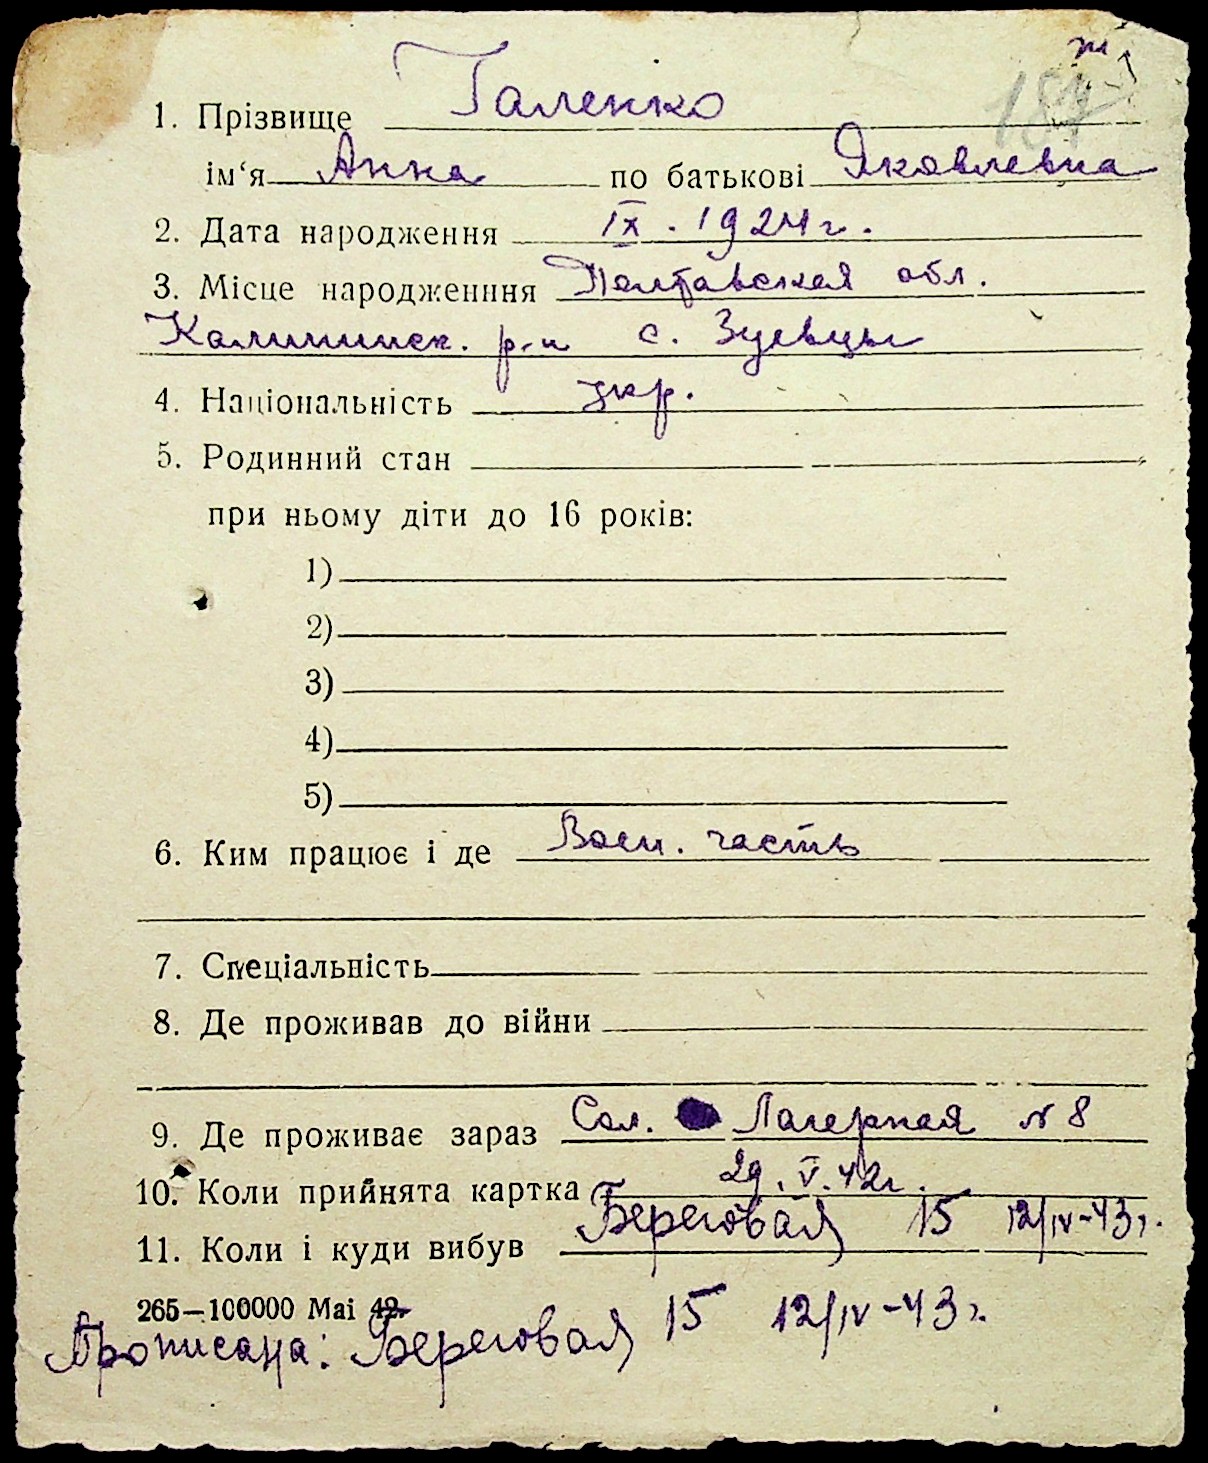 187
1. Прізвище Галенко
ім‘я Анна по батькові Яковлевна
2. Дата народження IX. 1924 г.
3. Місце народженння Полтавская обл.
Калининск. р-н с. Зуевцы
4. Національність укр.
5. Родинний стан
при ньому діти до 16 років:
1)
2)
3)
4)
5)
6. Ким працює і де Воен. часть
7. Спеціальність
8. Де проживав до війни
9. Де проживає зараз Сол. Лагерная № 8
10. Коли прийнята картка 29. V. 42 г.
11. Коли і куди вибув Береговая 15 12/IV-43 г.
265—100000 Маі 42.
Прописана: Береговая 15 12/IV-43 г.